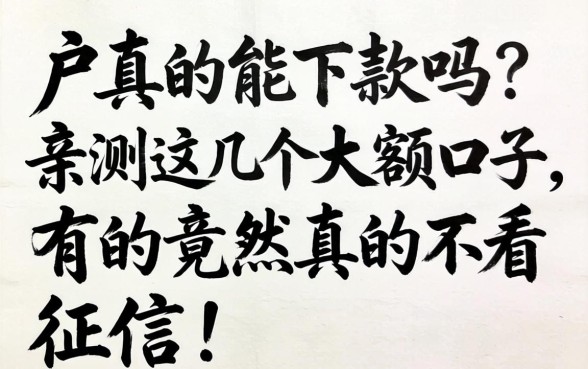 户真的能下款吗？
亲测这几个大额口子，
有的竟然真的不看
征信！